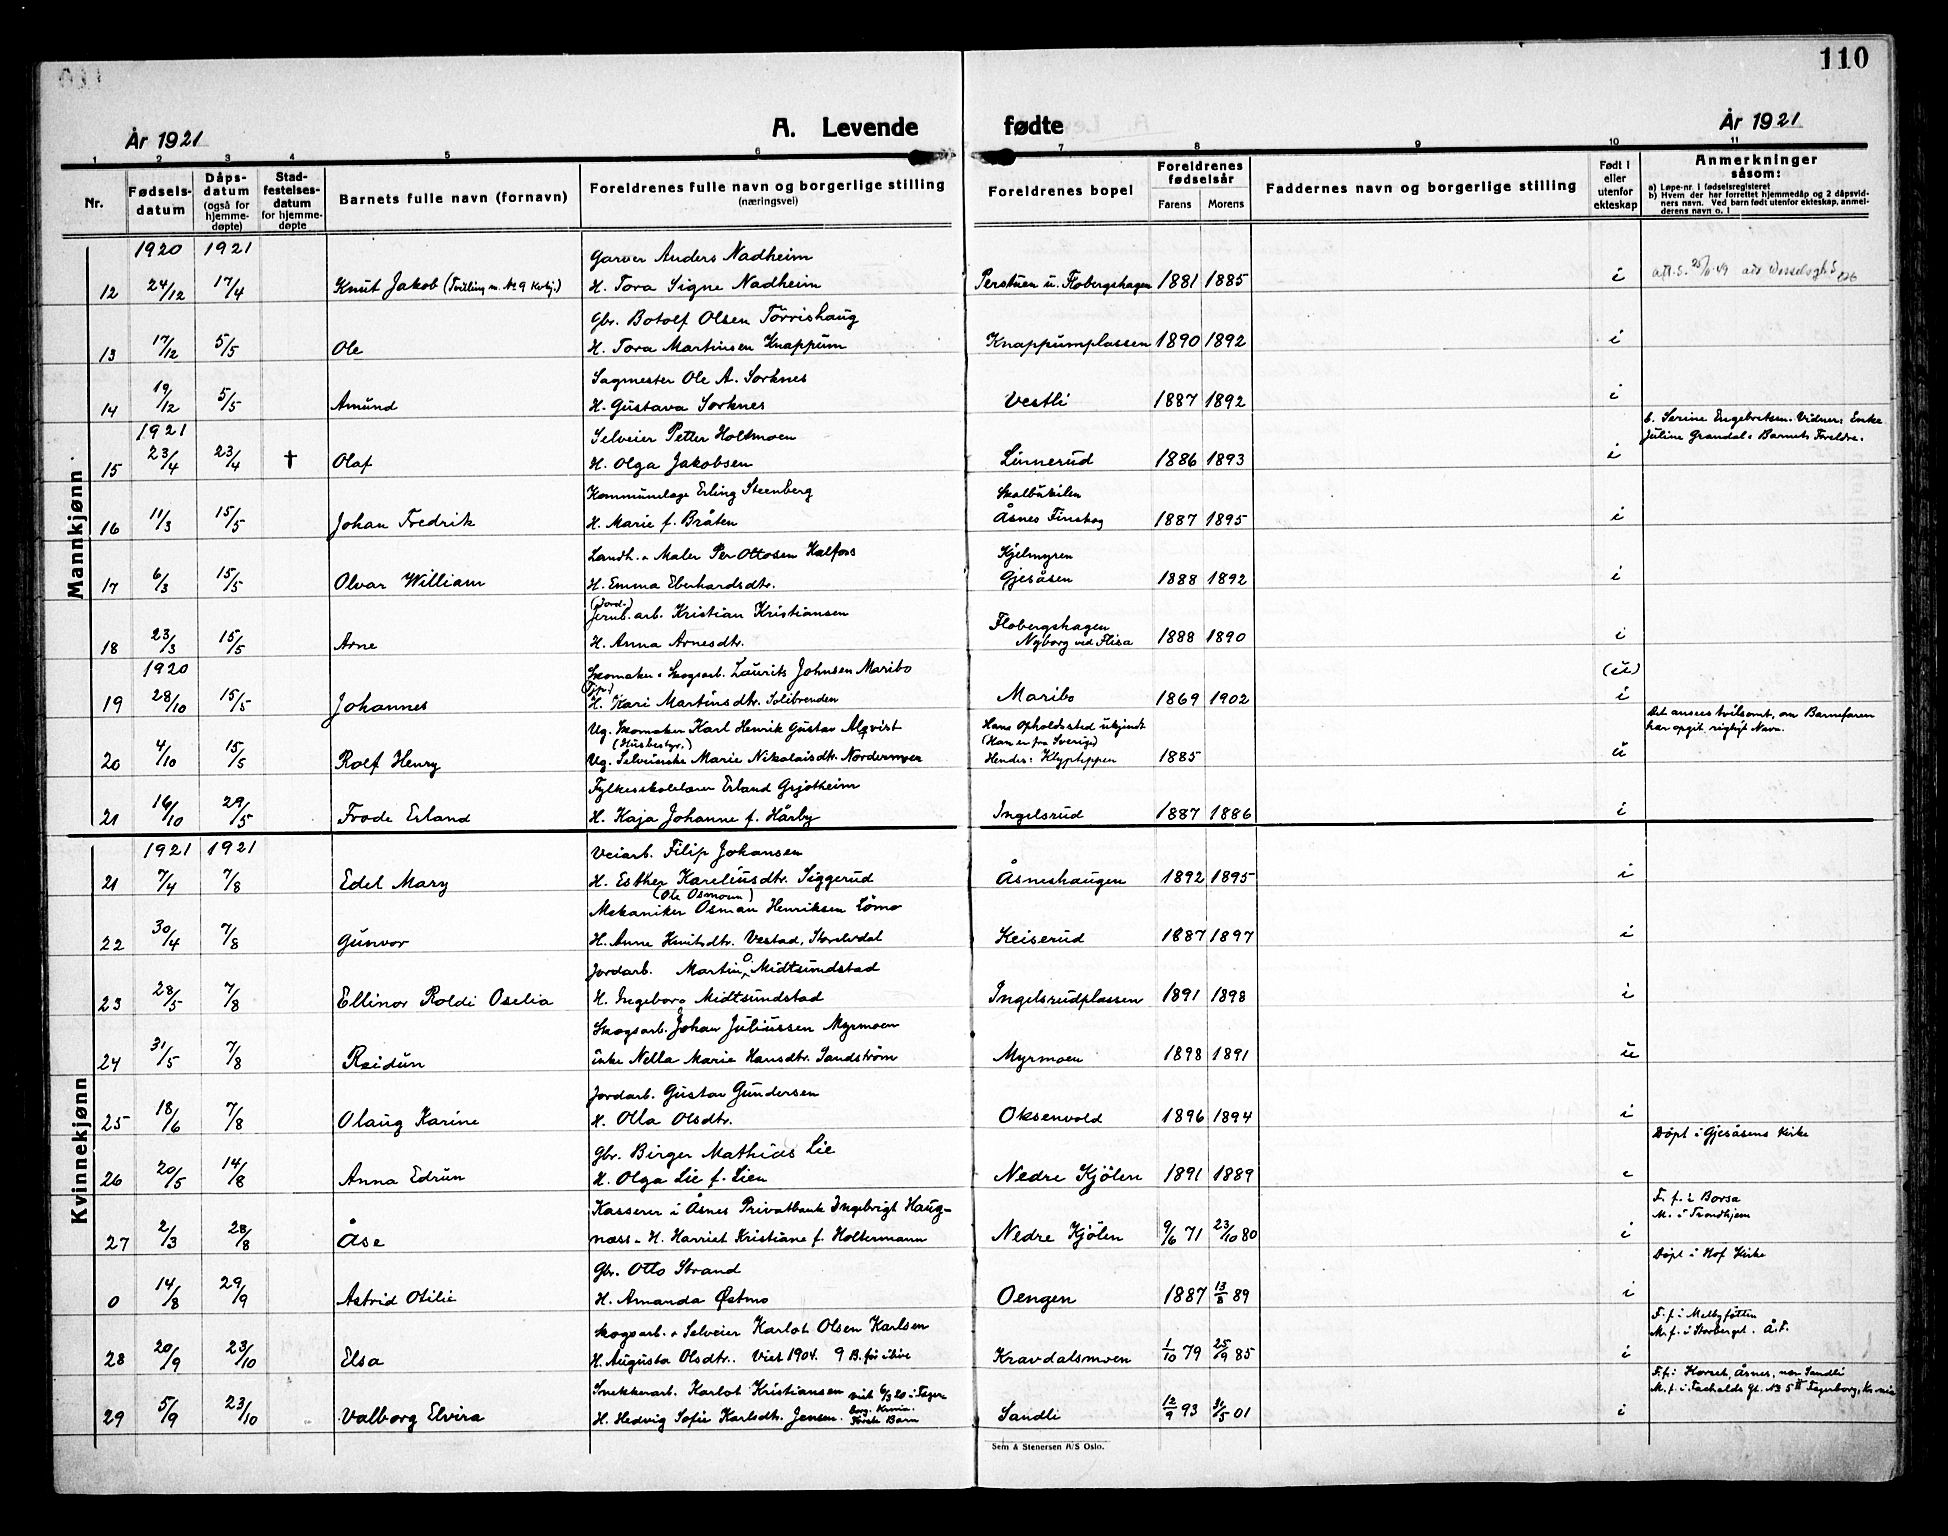 110
År 1921
A. Levende
fødte
År 1921
1 2 3 4 5 6 7 8 9 10 11
Nr.
Fødsels-
datum
Dåps-
datum
(også for
hjemme-
døpte)
Stad-
festelses-
datum
for hjemme-
døpte
Barnets fulle navn (fornavn)
Foreldrenes fulle navn og borgerlige stilling
(næringsvei)
Foreldrenes bopel
Foreldrenes
fødselsår
Farens Morens
Faddernes navn og borgerlige stilling
Født i
eller
utenfor
ekteskap
Anmerkninger
såsom:
a) Løpe-nr. i fødselsregisteret
b) Hvem der har forrettet hjemmedåp og 2 dåpsvid-
ners navn. Ved barn født utenfor ekteskap, anmel-
derens navn o. l
Mannkjønn
1920 1921 Garver Anders Nadheim
12 24/12 17/4 Knut Jakob (Tvilling m. No 9 Kvkj.) H. Tora Signe Nadheim Perstuen u. Flobergshagen 1881 1885 i
Gbr. Botolf Olsen Torrishaug
13 17/12 5/5 Ole H. Tora Martinsen Knappum Knappumplassen 1890 1892 i
Sagmester Ole A. Sorknes
14 19/12 5/5 Amund H. Gustava Sorknes Vestli 1887 1892 i
1921 Selveier Petter Holtmoen b. Serine Engebretsen. Vidner: Enke
Juline Grandal + Barnets Foreldre.
15 23/4 23/4 † Olaf H. Olga Jakobsen Linnerud 1886 1893 i
Kommunelæge Erling Steenberg Skalbukilen
16 11/3 15/5 Johan Fredrik H. Marie f. Bråten Åsnes Finskog 1887 1895 i
Landh. + Maler Per Ottosen Kalfoss Kjelmyren
17 6/3 15/5 Olvar William H. Emma Eberhardsdtr. Gjesåsen 1888 1892 i
(Jord.)
Jernb. arb. Kristian Kristiansen Flobergshagen
18 23/3 15/5 Arne H. Anna Arnesdtr. Nyborg ved Flisa 1888 1890 i
1920 Skomaker + Skogsarb. Laurits Johnsen Maribo (u)
19 28/10 15/5 Johannes H. Kari Martinsdtr. Solibrenden Maribo 1869 1902 i
Ug. Skomaker Karl Henrik Gustav Almqvist Hans Opholdssted ukjendt Det ansees tvilsomt, om Barnefaren
(Husbestyr.) (Han er fra Sverige) har opgit riktigt Navn.
20 4/10 15/5 Rolf Henry Ug. Selveierske Marie Nikolaisdtr. Nordermoen Hendes: Klyptippen 1885 u
Fylkesskolelærer Erland Grjotheim
21 16/10 29/5 Frode Erland H. Kaja Johanne f. Hårby Ingelsrud 1887 1886 i
Kvinnekjønn
1921 1921 Veiarb. Filip Johansen
21 7/4 7/8 Edel Mary H. Esther Kareliusdtr. Siggerud Åsneshaugen 1892 1895 i
(Ole Osmoen)
Mekaniker Osman Henriksen Lömo
22 30/4 7/8 Gunvor H. Anne Knutsdtr. Vestad, Storelvdal Keiserud 1887 1897 i
Jordarb. Martin O. Midtsundstad
23 28/5 7/8 Ellinor Roldi Oselia H. Ingeborg Midtsundstad Ingelsrudplassen 1891 1898 i
Skogsarb. Johan Juliussen Myrmoen
24 31/5 7/8 Reidun Enke Nella Marie Hansdtr. Sandström Myrmoen 1898 1891 u
Jordarb. Gustav Gundersen
25 18/6 7/8 Olaug Karine H. Olla Olsdtr. Oksenvold 1896 1894 i
Gbr. Birger Mathias Lie Döpt i Gjesåsens Kirke
26 20/5 14/8 Anna Edrun H. Olga Lie f. Lien Nedre Kjölen 1891 1889 i
Kasserer i Åsnes Privatbank Ingebrigt Haug- F. f. i Borsa
M. i Trondhjem
27 2/3 28/8 Åse næss - H. Harriet Kristiane f. Holtermann Nedre Kjölen 9/6 71 23/10 80 i
Gbr. Otto Strand Döpt i Hof Kirke
0 14/8 29/9 Astrid Otilie H. Amanda Østmo Oengen 1887 13/8 89 i
Skogsarb. + Selveier Karlot Olsen Karlsen F. f. i Melbyfötten
M. f. i Storberget. Å.F.
28 20/9 23/10 Elsa H. Augusta Olsdtr. Viet 1904. 9 B. för i live Kravdalsmoen 1/10 79 25/9 85 i
Snekkerarb. Karlot Kristiansen viet 6/3 20 i Fager- F. f. i Horset, Åsnes, nær Sandli
borg. Krania.
29 5/9 23/10 Valborg Elvira H. Hedvig Sofie Karlsdtr. Jensen. Første Barn Sandli 12/9 93 31/5 01 i
Sem & Stenersen A/S Oslo.